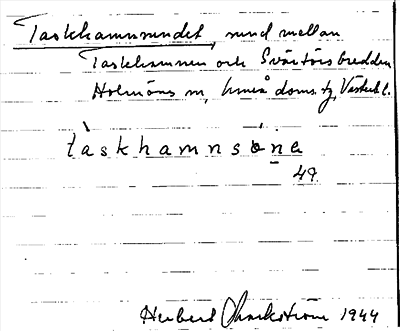 Taskhamnsundet, sund mellan
Taskhamnen och Svärtörsbredden
Holmöns sn, Umeå doms. tg, Västerb. l.
tàskhamnsónẹ
49.
Herbert Markström 1944